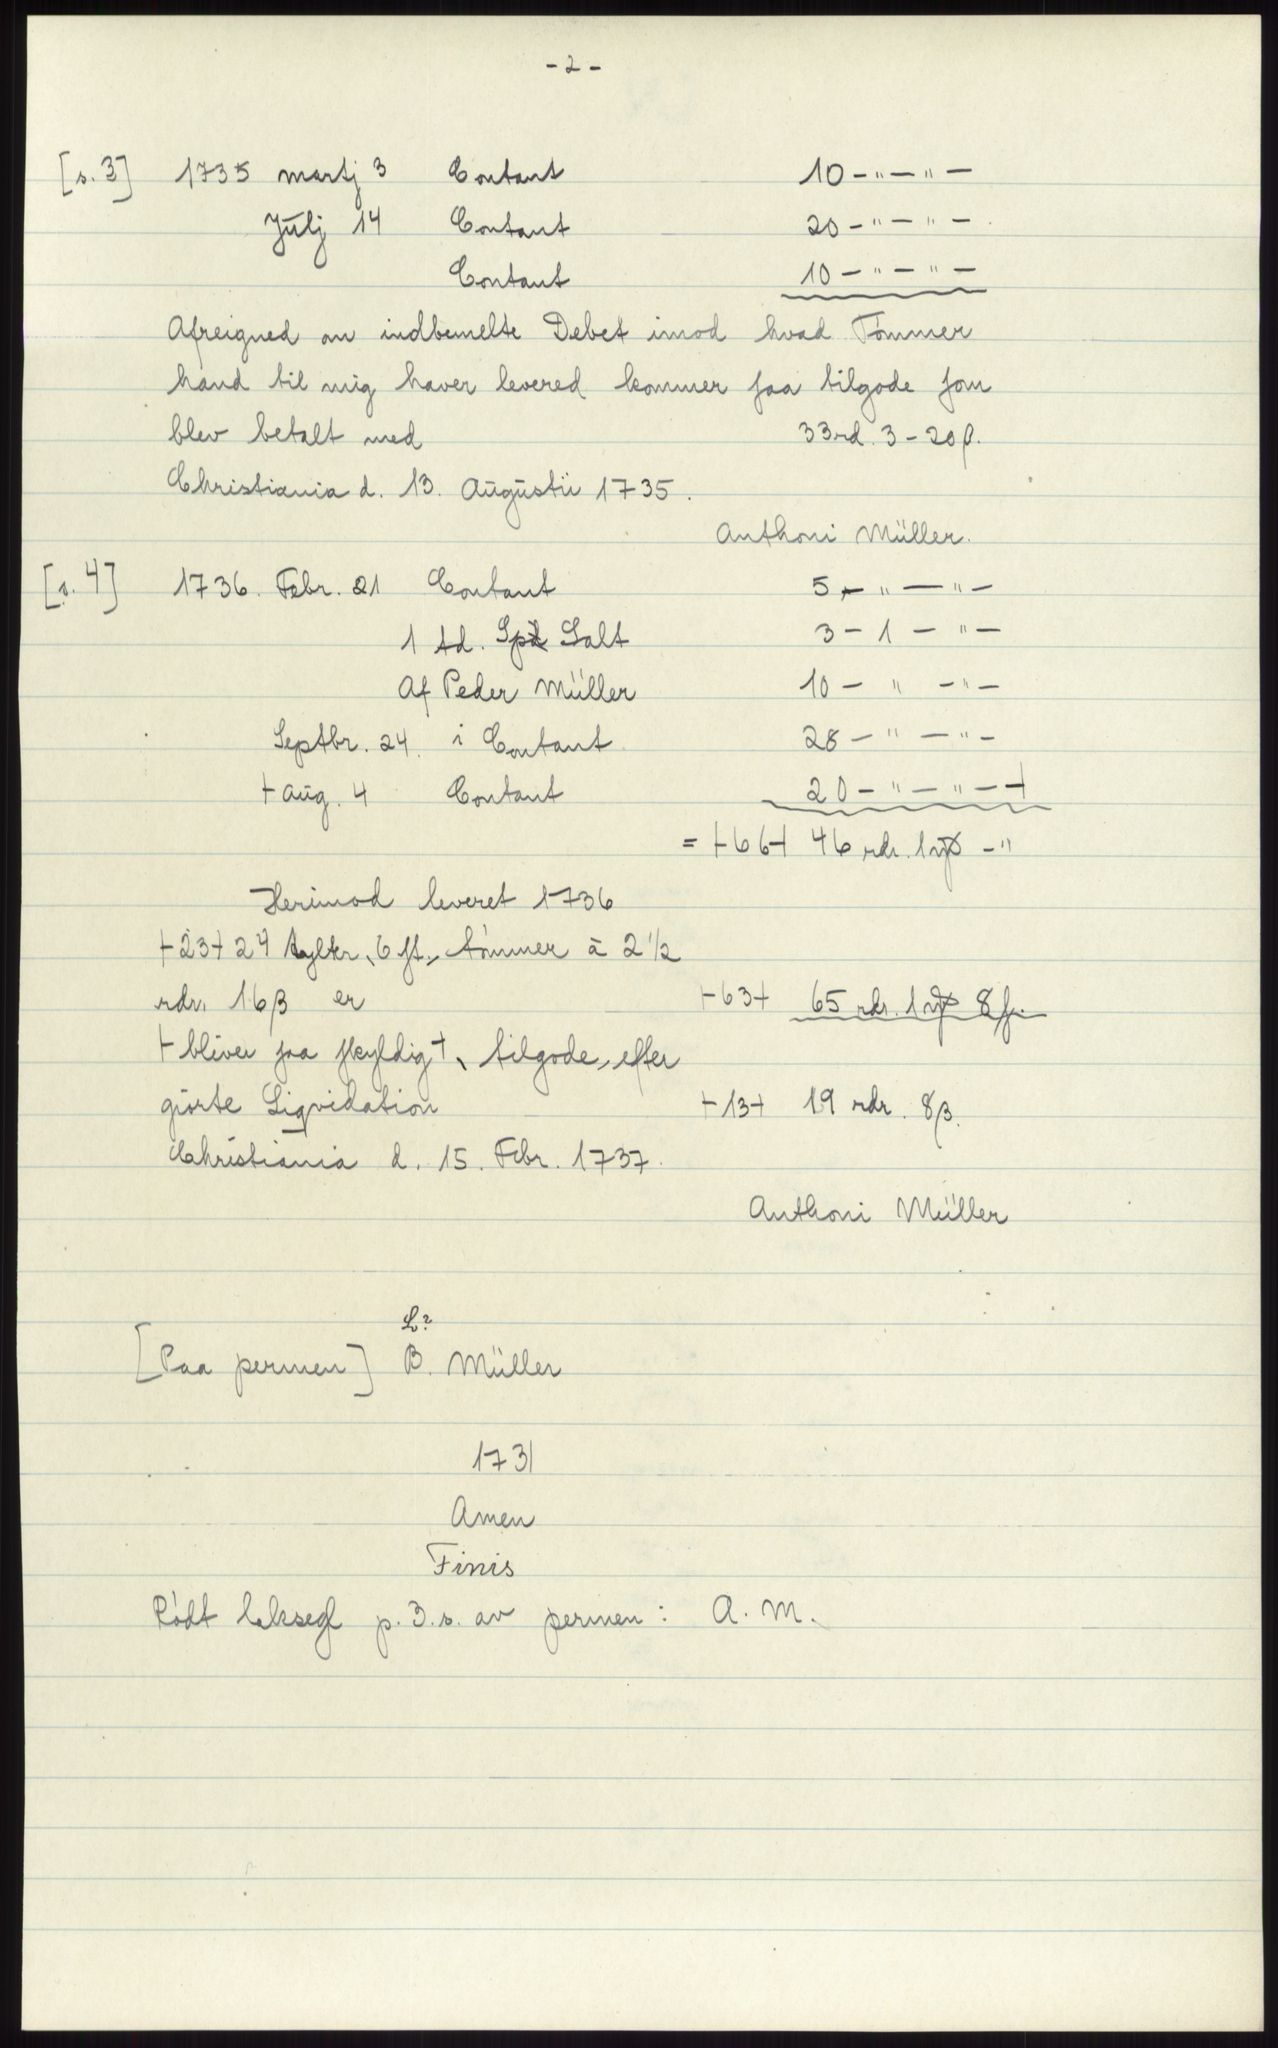 - 2 -
[s. 3] 1735 martj 3 Contant 10 - " - " -
Julj 14 Contant 20 - " - " -
Contant 10 - " - " -
Afreigned on indbemelte Debet imod hvad Tömmer
hand til mig haver levered kommer saa tilgode som
blev betalt med 33rd. 3 - 20 β.
Christiania d. 13. Augustii 1735.
Anthoni Müller.
[s. 4] 1736. Febr. 21 Contant 5 - " - " -
1 td. Sp Salt 3 - 1 - " -
Af Peder Müller 10 - " - " -
Septbr. 24. i Contant 28 - " - " -
+ Aug. 4 Contant 20 - " - " - +
= +66+ 46 rdr. 1 - "
Herimod leveret 1736
+23+ 24 tylter, 6 st., tömmer à 2 1/2
rdr. 16β er +63+ 65 rdr. 1 8 β.
+ bliver saa skyldig +, tilgode, efter
giorte Liqvidation +13+ 19 rdr. 8β.
Christiania d. 15. Febr. 1737.
Anthoni Müller
[Paa permen] B. Müller
1731
Amen
Finis
Rödt laksegl p. 3. s. av permen: A. M.